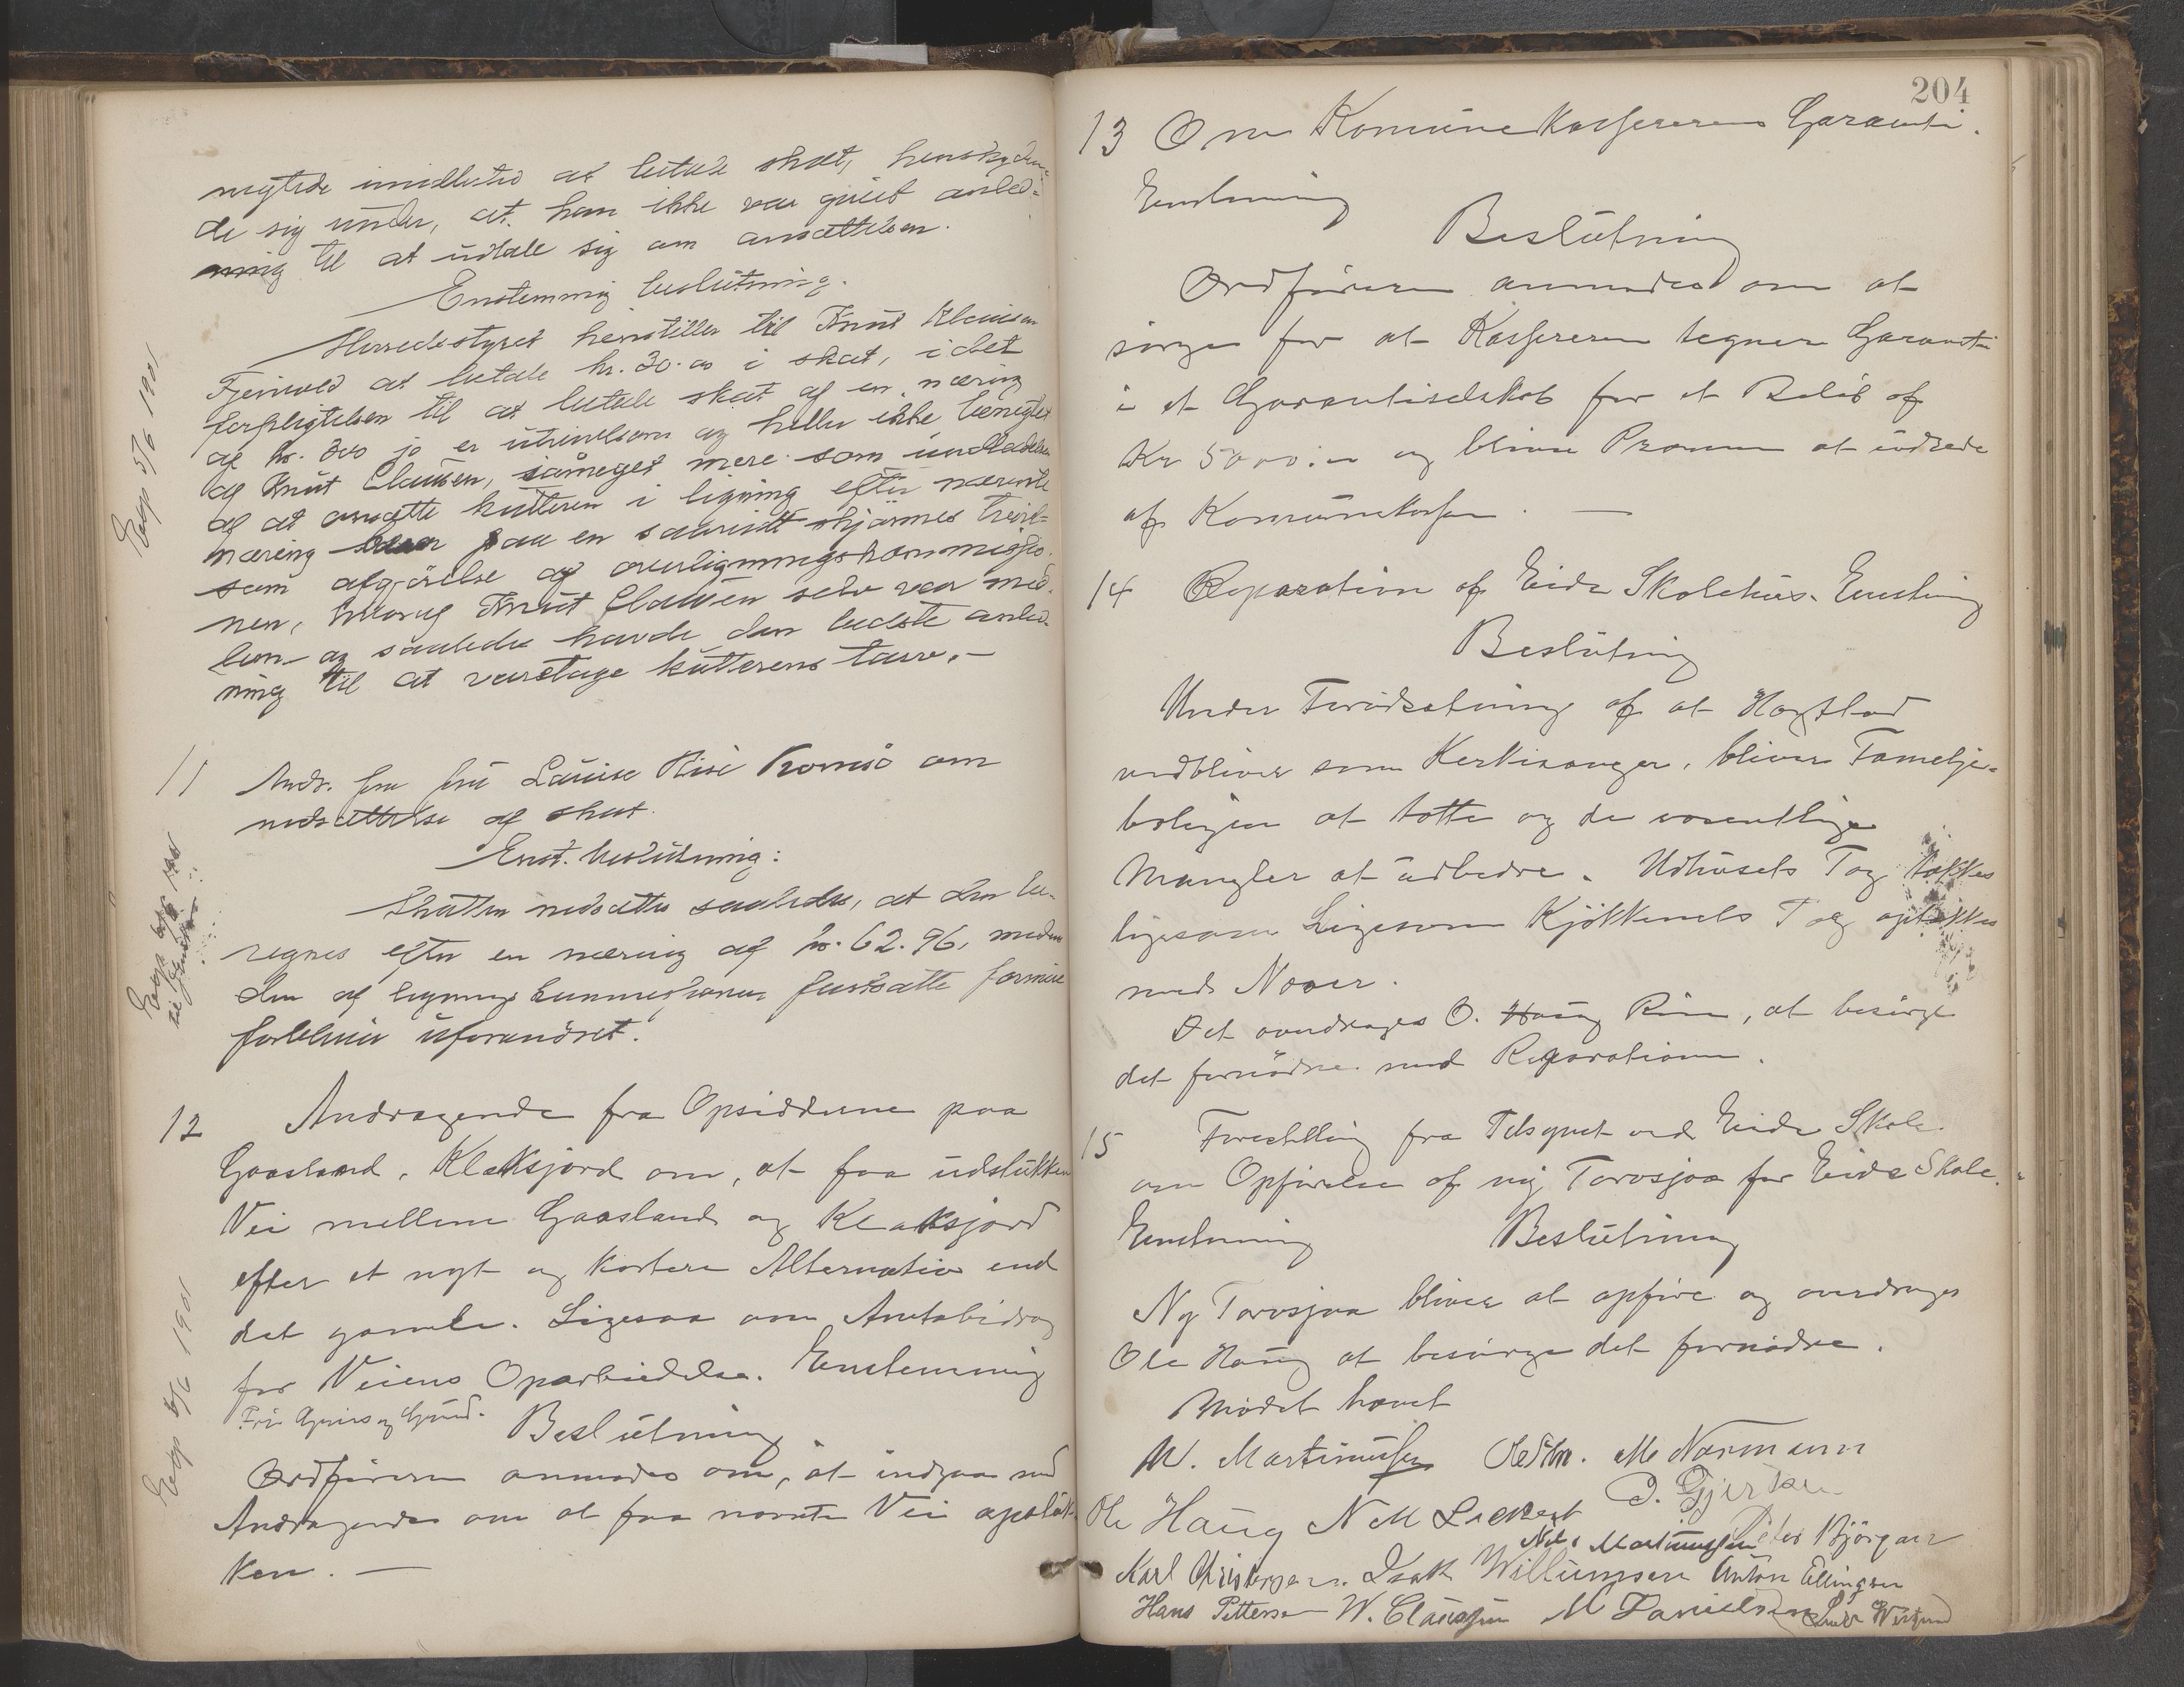 negtede imidlertid at betale skat, henskyden-
de sig under, at han ikke var givet anled-
ning til at udtale sig om ansættelsen.
Enstemmig beslutning.
Herredsstyret henstiller til Knut Klausen
at betale kr. 30.00 i skat, idet
forpligtelsen til at betale skat af en næring
af kr. 300 jo er utvivlsom og heller ikke benegtet
af Knut Clausen, saameget mere som undladelsen
af at ansætte kutteren i ligning efter nævnte
næring paa en saavidt skjønnes tvivl-
som afgjørelse af overligningskommissio-
nen, hvoraf Knut Clausen selv var med-
lem og saaledes havde den bedste anled-
ning til at varetage kutterens tarv.-
Exp 5/6 1901
11 Andr. fra fru Louise Riise Tromsø om
nedsættelse af skat.
Enst. beslutning:
Skatten nedsættes saaledes, at den be-
regnes efter en næring af kr. 62.96, medens
den af ligningskommissionen fastsatte formue
forbliver uforandret.
12 Andragende fra Opsidderne paa
Gaasland, Klaksjord om, at faa udstukken
Vei mellem Gaasland og Klaksjord
efter et nyt og kortere Alternativ end
det gamle. Ligesaa om Amtsbidrag
for Veiens Oparbeidelse. Enstemmig
Fri Gjerde og Grund.
Beslutning
Ordføreren anmodes om, at indgaa med
Andragende om at faa nævnte Vei opstuk-
ken. —
Exp 5/6 1901
204
13 Om Komunekassererens Garanti.
Enstemmig
Beslutning
Ordføreren anmodes om at
sørge for at Kassereren tegner Garanti
i et Garantiselskab for et Beløb af
Kr 5000.00 og bliver Præmien at udrede
af Komunekassen. —
14 Reparation af Eide Skolehus. Enstemig
Beslutning
Under Forudsætning af at Hogstad
vedbliver som Kerkesanger, bliver Familje-
boligen at tætte og de væsentlige
Mangler at udbedre. Udhusets Tag tækkes
ligesom Ligesom Kjøkkenets Tag optækkes
med Næver.
Det overdrages O. Haug Rise, at besørge
det fornødne med Reparationen.
15 Forestilling fra Tilsynet ved Eide Skole
om Opførelse af ny Torvsjaa for Eide Skole.
Enstemmig Beslutning
Ny Torvsjaa bliver at opføre og overdrages
Ole Haug at besørge det fornødne.
Mødet hævet
M. Martinussen Ordfm. M Normann
Ole Haug N M Lockert J. Gjertsen
Nils Martinussen Peder Bjørgan
Karl Christensen. Isak Willumsen Anton Ellingsen
Hans Pettersen W. Claussen M Danielsen